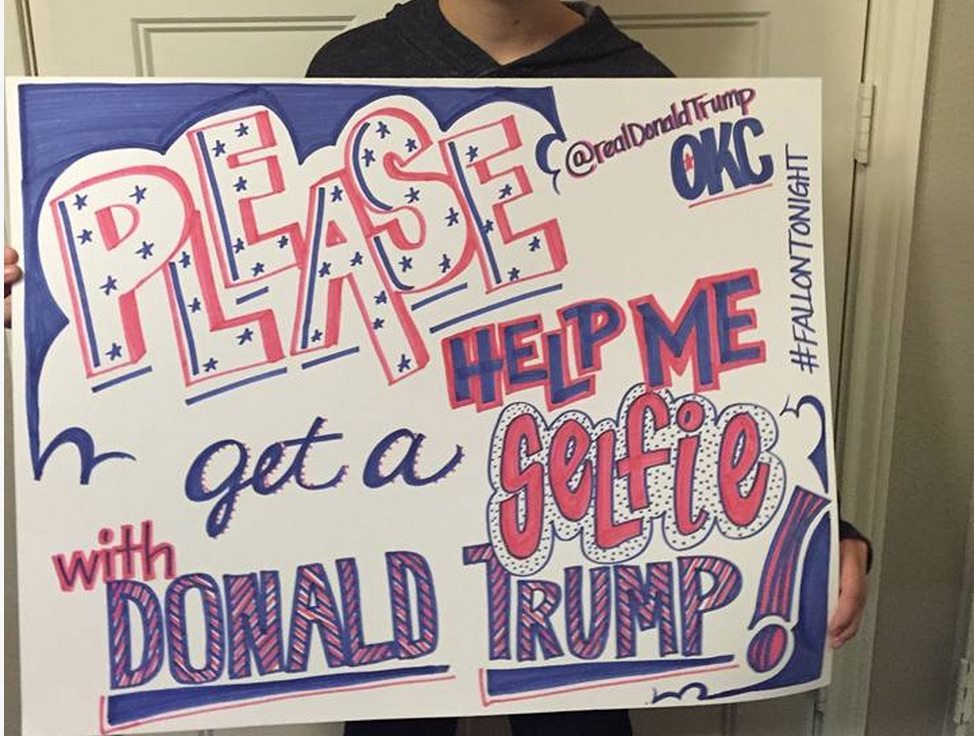 PLEASE
@realDonaldTrump
OKC
#FALLONTONIGHT
HELP ME
get a selfie
with
DONALD TRUMP!